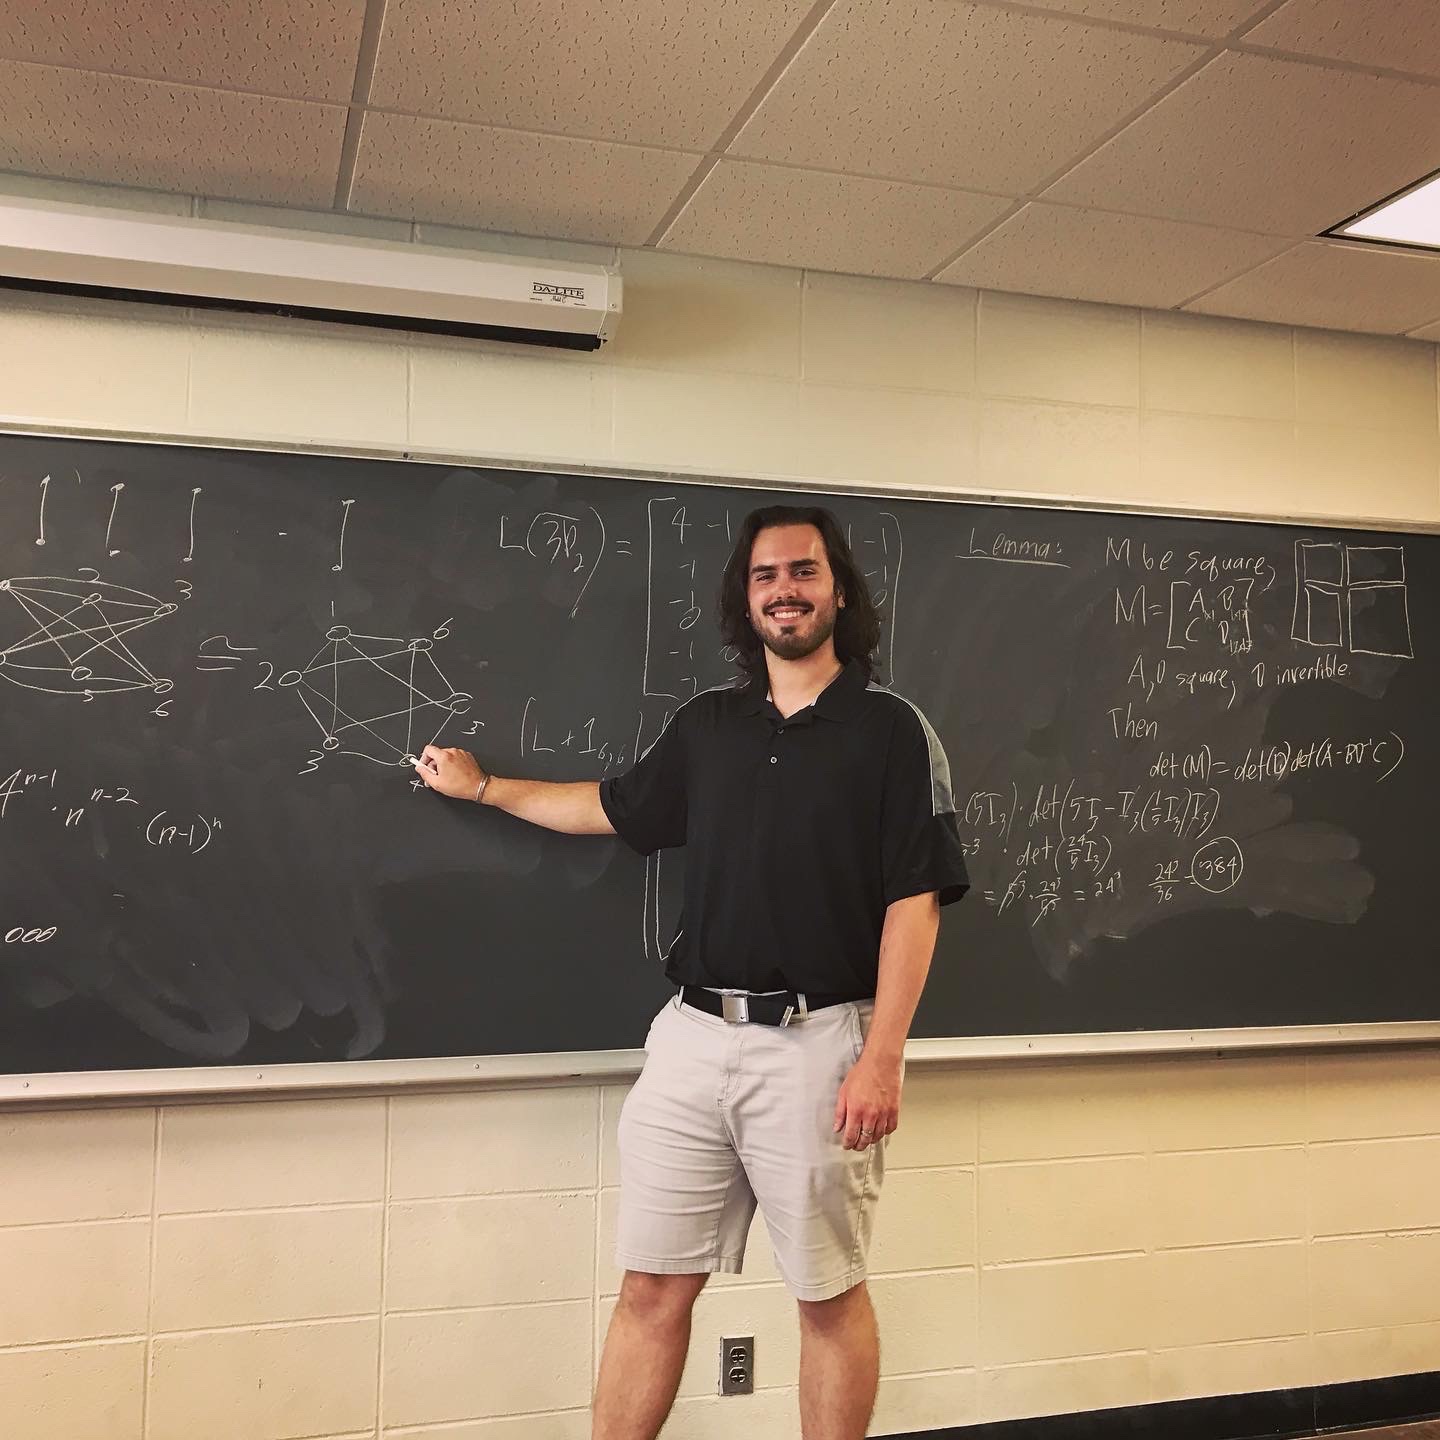 DA-LITE
Model C
1
2
3
5
6
≅
1
2
6
3
5
4
4^{n-1} · n^{n-2} · (n-1)^n
=
000
L(\overline{3P_2}) =
4 -1 -1
-1
-1 0
-1
-1
(L + 1_{6,6})
Lemma: M be square,
M = [A B
C D]
A, D square, D invertible.
Then
det(M) = det(D)det(A-BD^{-1}C)
(5I_3) · det(5I_3 - I_3(1/5 I_3)I_3)
· det(24/5 I_3)
= 5^3 · 24^3/5^3 = 24^3
24^3/36 = 384